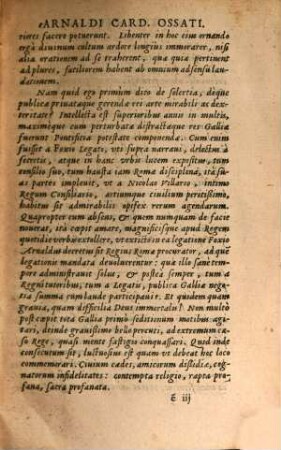 ARNALDI CARD. OSSATI.
tiores facere potuerunt. Libenter in hoc eius ornando
erga diuinum cultum ardore longius immorarer, nisi
alia orationem ad se traherent, quæ quia pertinent
ad plures, faciliorem habent ab omnium adsensu lau-
dationem.
Nam quid ego primùm dico de solertia, déque
publica priuatáque gerenda rei arte mirabili ac dex-
teritate? Intellecta est superioribus annis in multis,
maximéque cum perturbata distractáque res Galliæ
fuerunt Pontificia potestate componendæ. Cum enim
fuisset à Foxio Legato, vti suprà narraui, delectus à
secretis, atque in hanc vrbis lucem expositus, tum
consilio suo, tum hausta iam Romæ disciplina, ità suas
partes impleuit, vt à Nicolao Villario, intimo
Regum Consiliario, artiúmque ciuilium peritissimo,
habitus sit admirabilis opifex rerum agendarum.
Quapropter eum absens, & quem numquam de facie
nouerat, ità cœpit amare, magnificísque apud Regem
quotidie verbis extollere, vt extincto in ea legatione Foxio
Arnaldus decretus sit Regius Romæ procurator, ad quem
legationis mandata deuoluerentur: quæ ille sanctè sem-
per administrauit solus, & posteà semper, tum à
Regni tutoribus, tum à Legatis, publica Galliæ nego-
tia summa cum laude participauit. Et quidem quàm
grauia, quàm difficilia Deus immortalis! Non multò
post cæpit tota Gallia primò seditionum motibus agi-
tari, deinde grauissimo bello percuti, ad extremum cæ-
so Rege, quasi mentis fastigio conquassari. Quod inde
consecutum sit, luctuosius est quàm vt debeat hoc loco
commemorari. Ciuium cædes, amicorum dissidia, cog-
natorum infidelitates: contempta religio, rapta pro-
fana, sacra profanata.
é iij